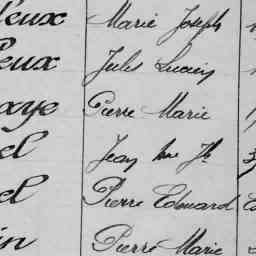 eux Marie Joseph
eux Jules Lucien
aye Pierre Marie
el Jean
el Pierre Edouard
in Pierre Marie